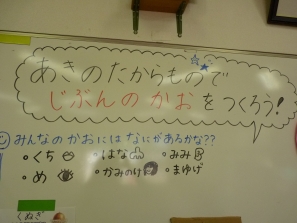 あきのたからもので
じぶんの かおをつくろう!
みんなの かおには なにがあるかな??
・くち ・はな ・みみ
・め ・かみのけ ・まゆげ
くぬぎ